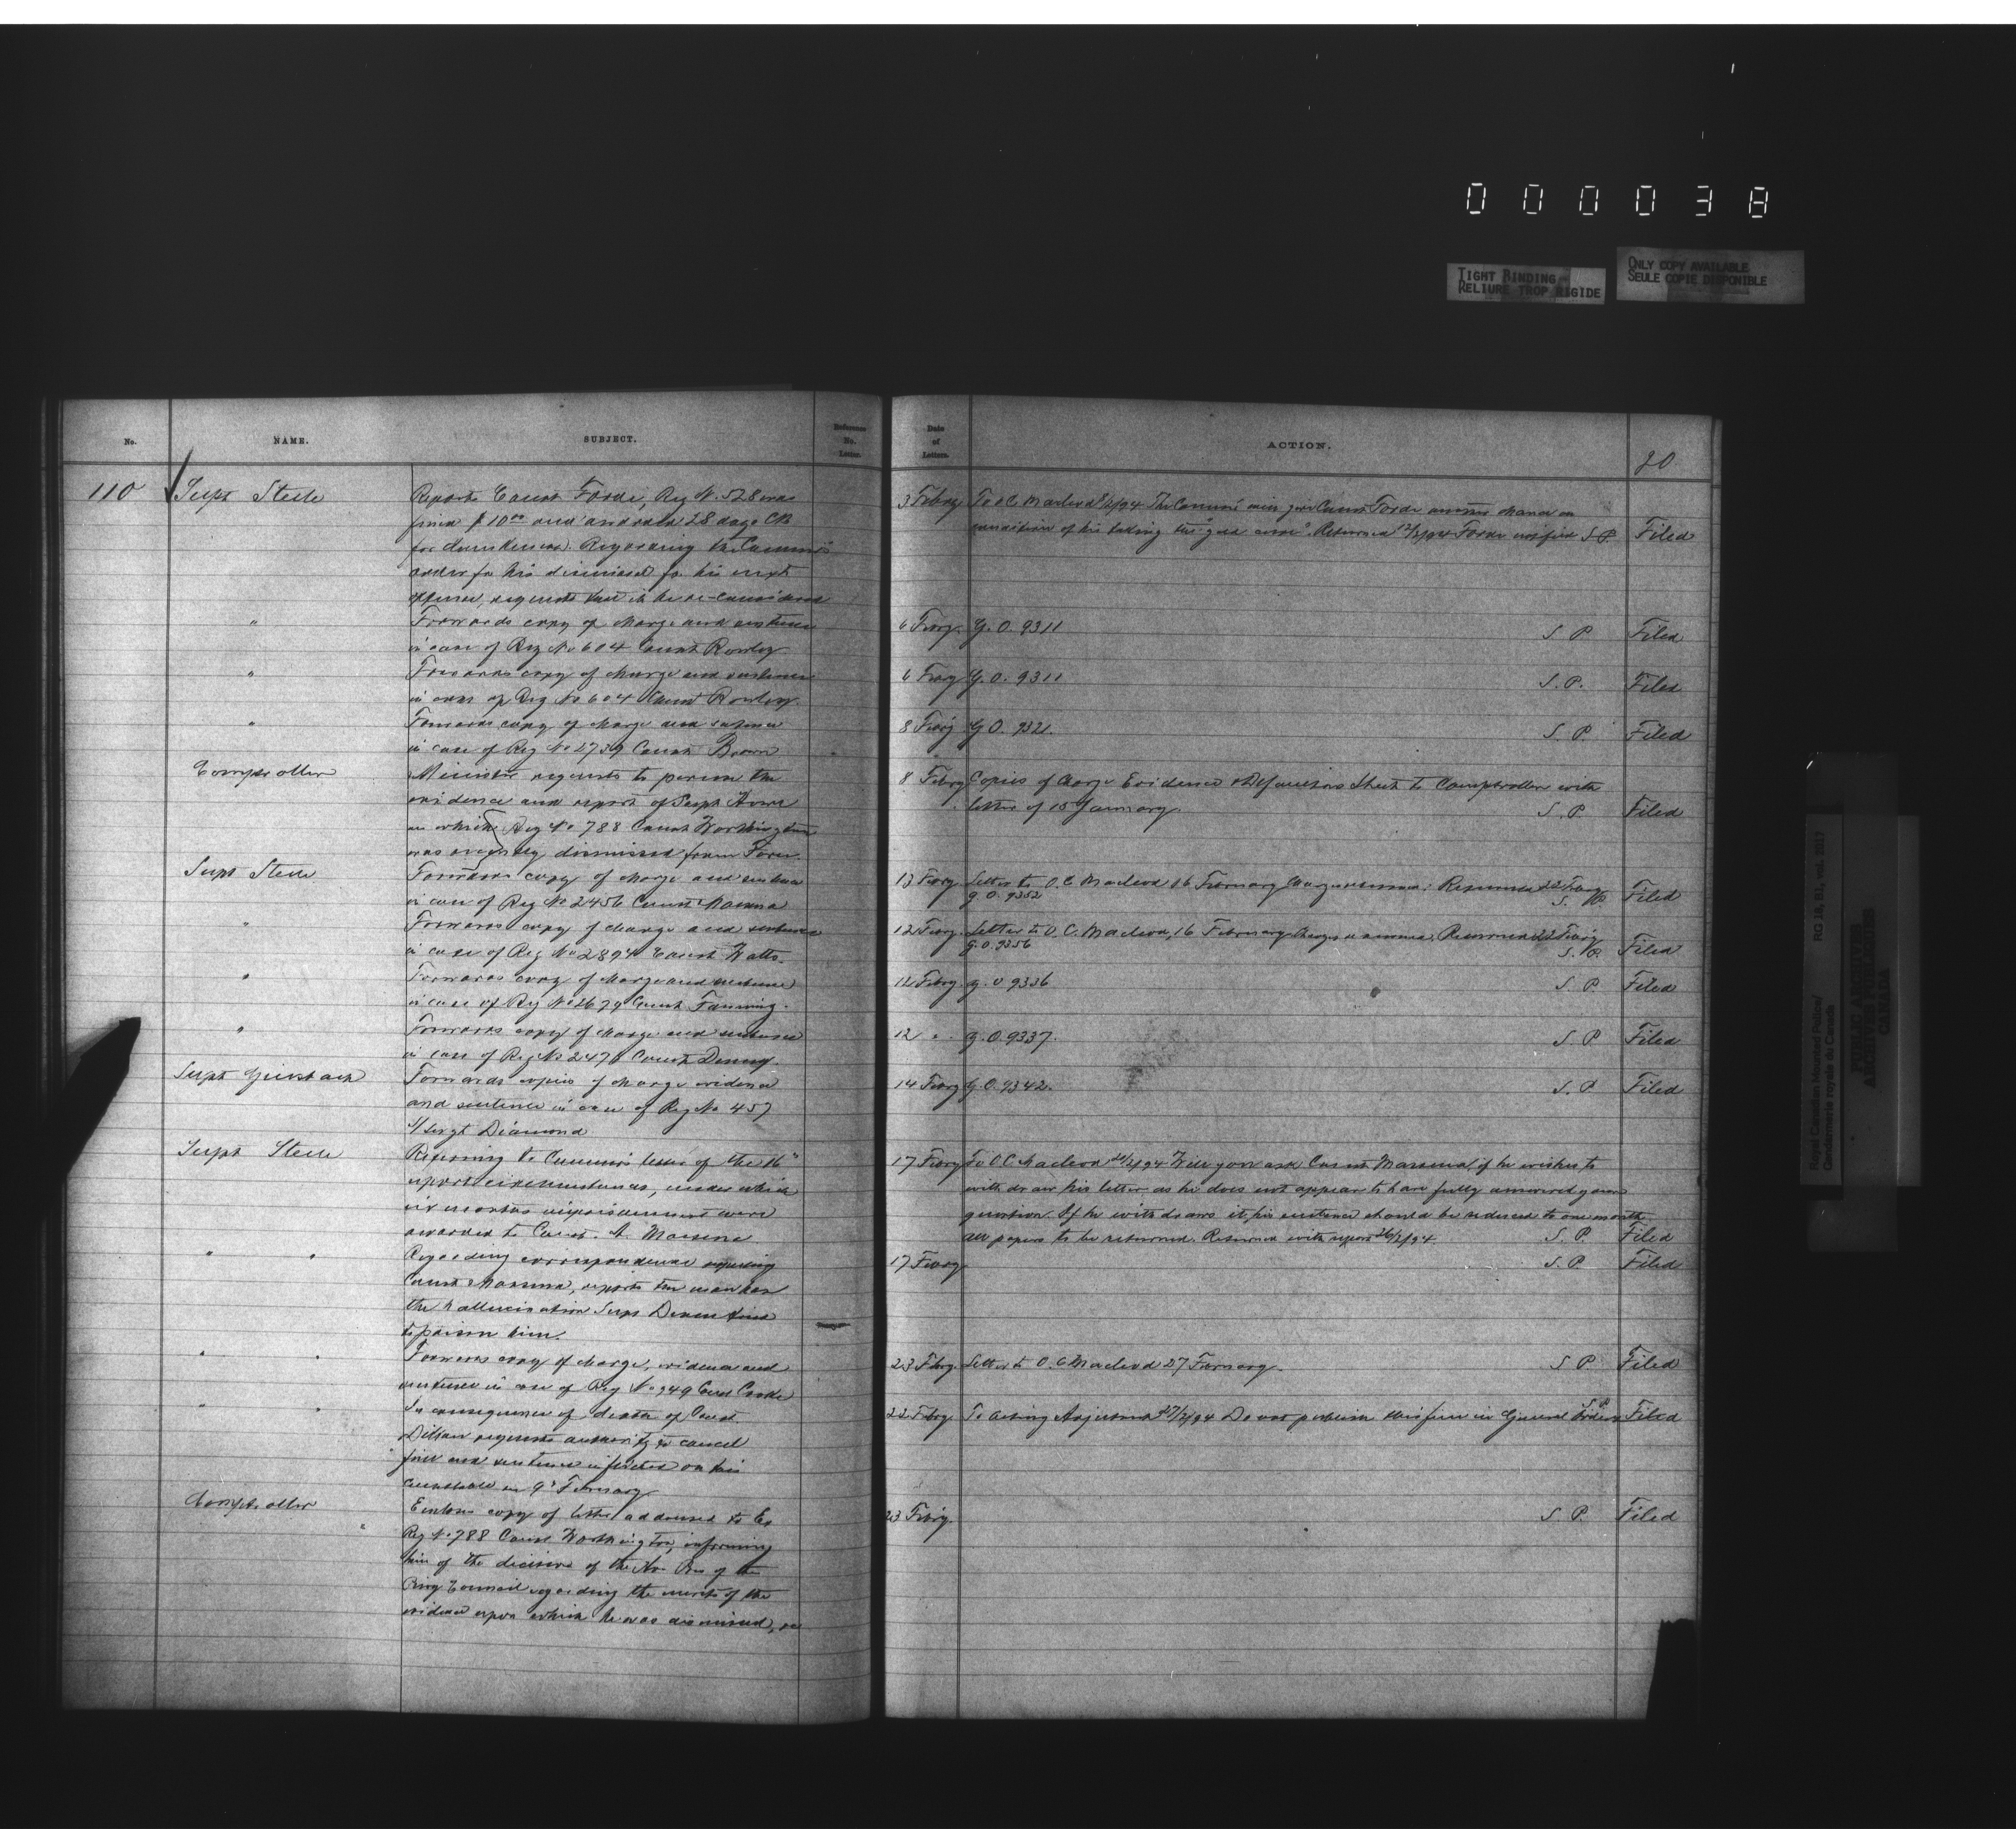 000038
TIGHT BINDING
RELIURE TROP RIGIDE
ONLY COPY AVAILABLE
SEULE COPIE DISPONIBLE
No. NAME. SUBJECT. Reference No. Letter.
110 Supt Steele Reports Const Forde, Reg No. 528 was
fined $10 00 and awarded 28 days CB
for drunkenness. Regarding the Commrs
order for his dismissal for his next
offence, requests that it be re-considered
" Forwards copy of charge and sentence
in case of Reg No 604 Const Rowley
" Forwards copy of charge and sentence
in case of Reg No 604 Const Rowley
" Forwards copy of charge and sentence
in case of Reg No 2739 Const Brown
Comptroller Minister requests to peruse the
evidence and report of Supt Howe
on which Reg No 788 Const Worthington
was dismissed from Force
Supt Steele Forwards copy of charge and sentence
in case of Reg No 2456 Const
" Forwards copy of charge and sentence
in case of Reg No 2894 Const Watts.
" Forwards copy of charge and sentence
in case of Reg No 2679 Const Fanning.
" Forwards copy of charge and sentence
in case of Reg No 2476 Const Denny
Supt Griesbach Forwards copies of charge evidence
and sentence in case of Reg No 457
S/Sergt Diamond
Supt Steele Referring to Commrs letter of the 16"
report circumstances, under which
six months imprisonment were
awarded to Const. A.
" " Regarding correspondence
Const reports the man has
the hallucination Supt Deane tried
to poison him.
" " Forwards copy of charge, evidence and
sentence in case of Reg No 949 Const Cooke
" " In consequence of death of Const
Dillon requests authority to cancel
fine and sentence inflicted on this
constable on 9" February
Comptroller Encloses copy of letter addressed to Ex
" Reg No 788 Const Worthington, informing
him of the decision of the Hon Pres of the
Privy Council regarding the merits of the
evidence upon which he was dismissed,
Date of Letters. ACTION. 20
3 Febry To O C Macleod 8/2/94 The Commr will give Const Forde another chance on
condition of his taking the "gold cure". Returned 12/2/94 Forde notified S.P. Filed
6 Febry. G.O. 9311 S. P Filed
6 Febry G.O. 9311 S.P. Filed
8 Febry G O. 9321. S. P. Filed
8 Febry Copies of Charge Evidence & Defaulters Sheet to Comptroller with
letter of 15 January S.P. Filed
13 Febry Letter to O.C Macleod 16 February Charge returned: Returned 22 Febry
G.O. 9352 S. P. Filed
12 Febry. Letter to O. C. Macleod, 16 February Charge returned, Returned 22 Febry
G.O. 9356 S. P. Filed
12 Febry. G. O 9336 S. P. Filed
12 " G.O. 9337. S P Filed
14 Febry G.O. 9342. S. P Filed
17 Febry To O C Macleod 21/2/94 Will you ask Const if he wishes to
withdraw his letter as he does not appear to have fully answered your
question. If he withdraws it, his sentence should be reduced to one month
all papers to be returned. Returned with report 26/2/94. S. P. Filed
17 Febry S. P. Filed
23 Febry. Letter to O. C Macleod 27 S P Filed
22 Febry. To Acting Adjutant 27/2/94 Do not publish this fine in General Orders S P Filed
23 Febry. S P. Filed
Royal Canadian Mounted Police/
Gendarmerie royale du Canada
RG 18, B1, vol. 2017
PUBLIC ARCHIVES
ARCHIVES PUBLIQUES
CANADA